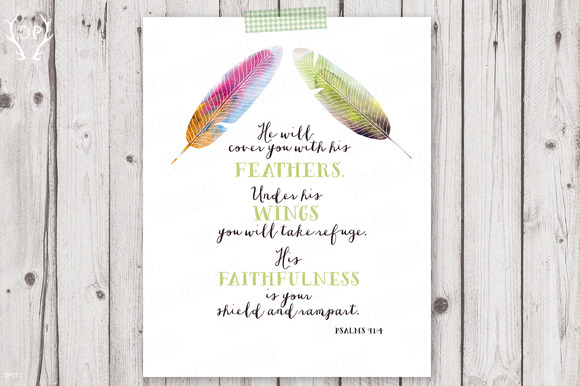 DP
He will
cover you with his
FEATHERS.
Under his
WINGS
you will take refuge.
His
FAITHFULNESS
is your
shield and rampart.
PSALMS 91:4